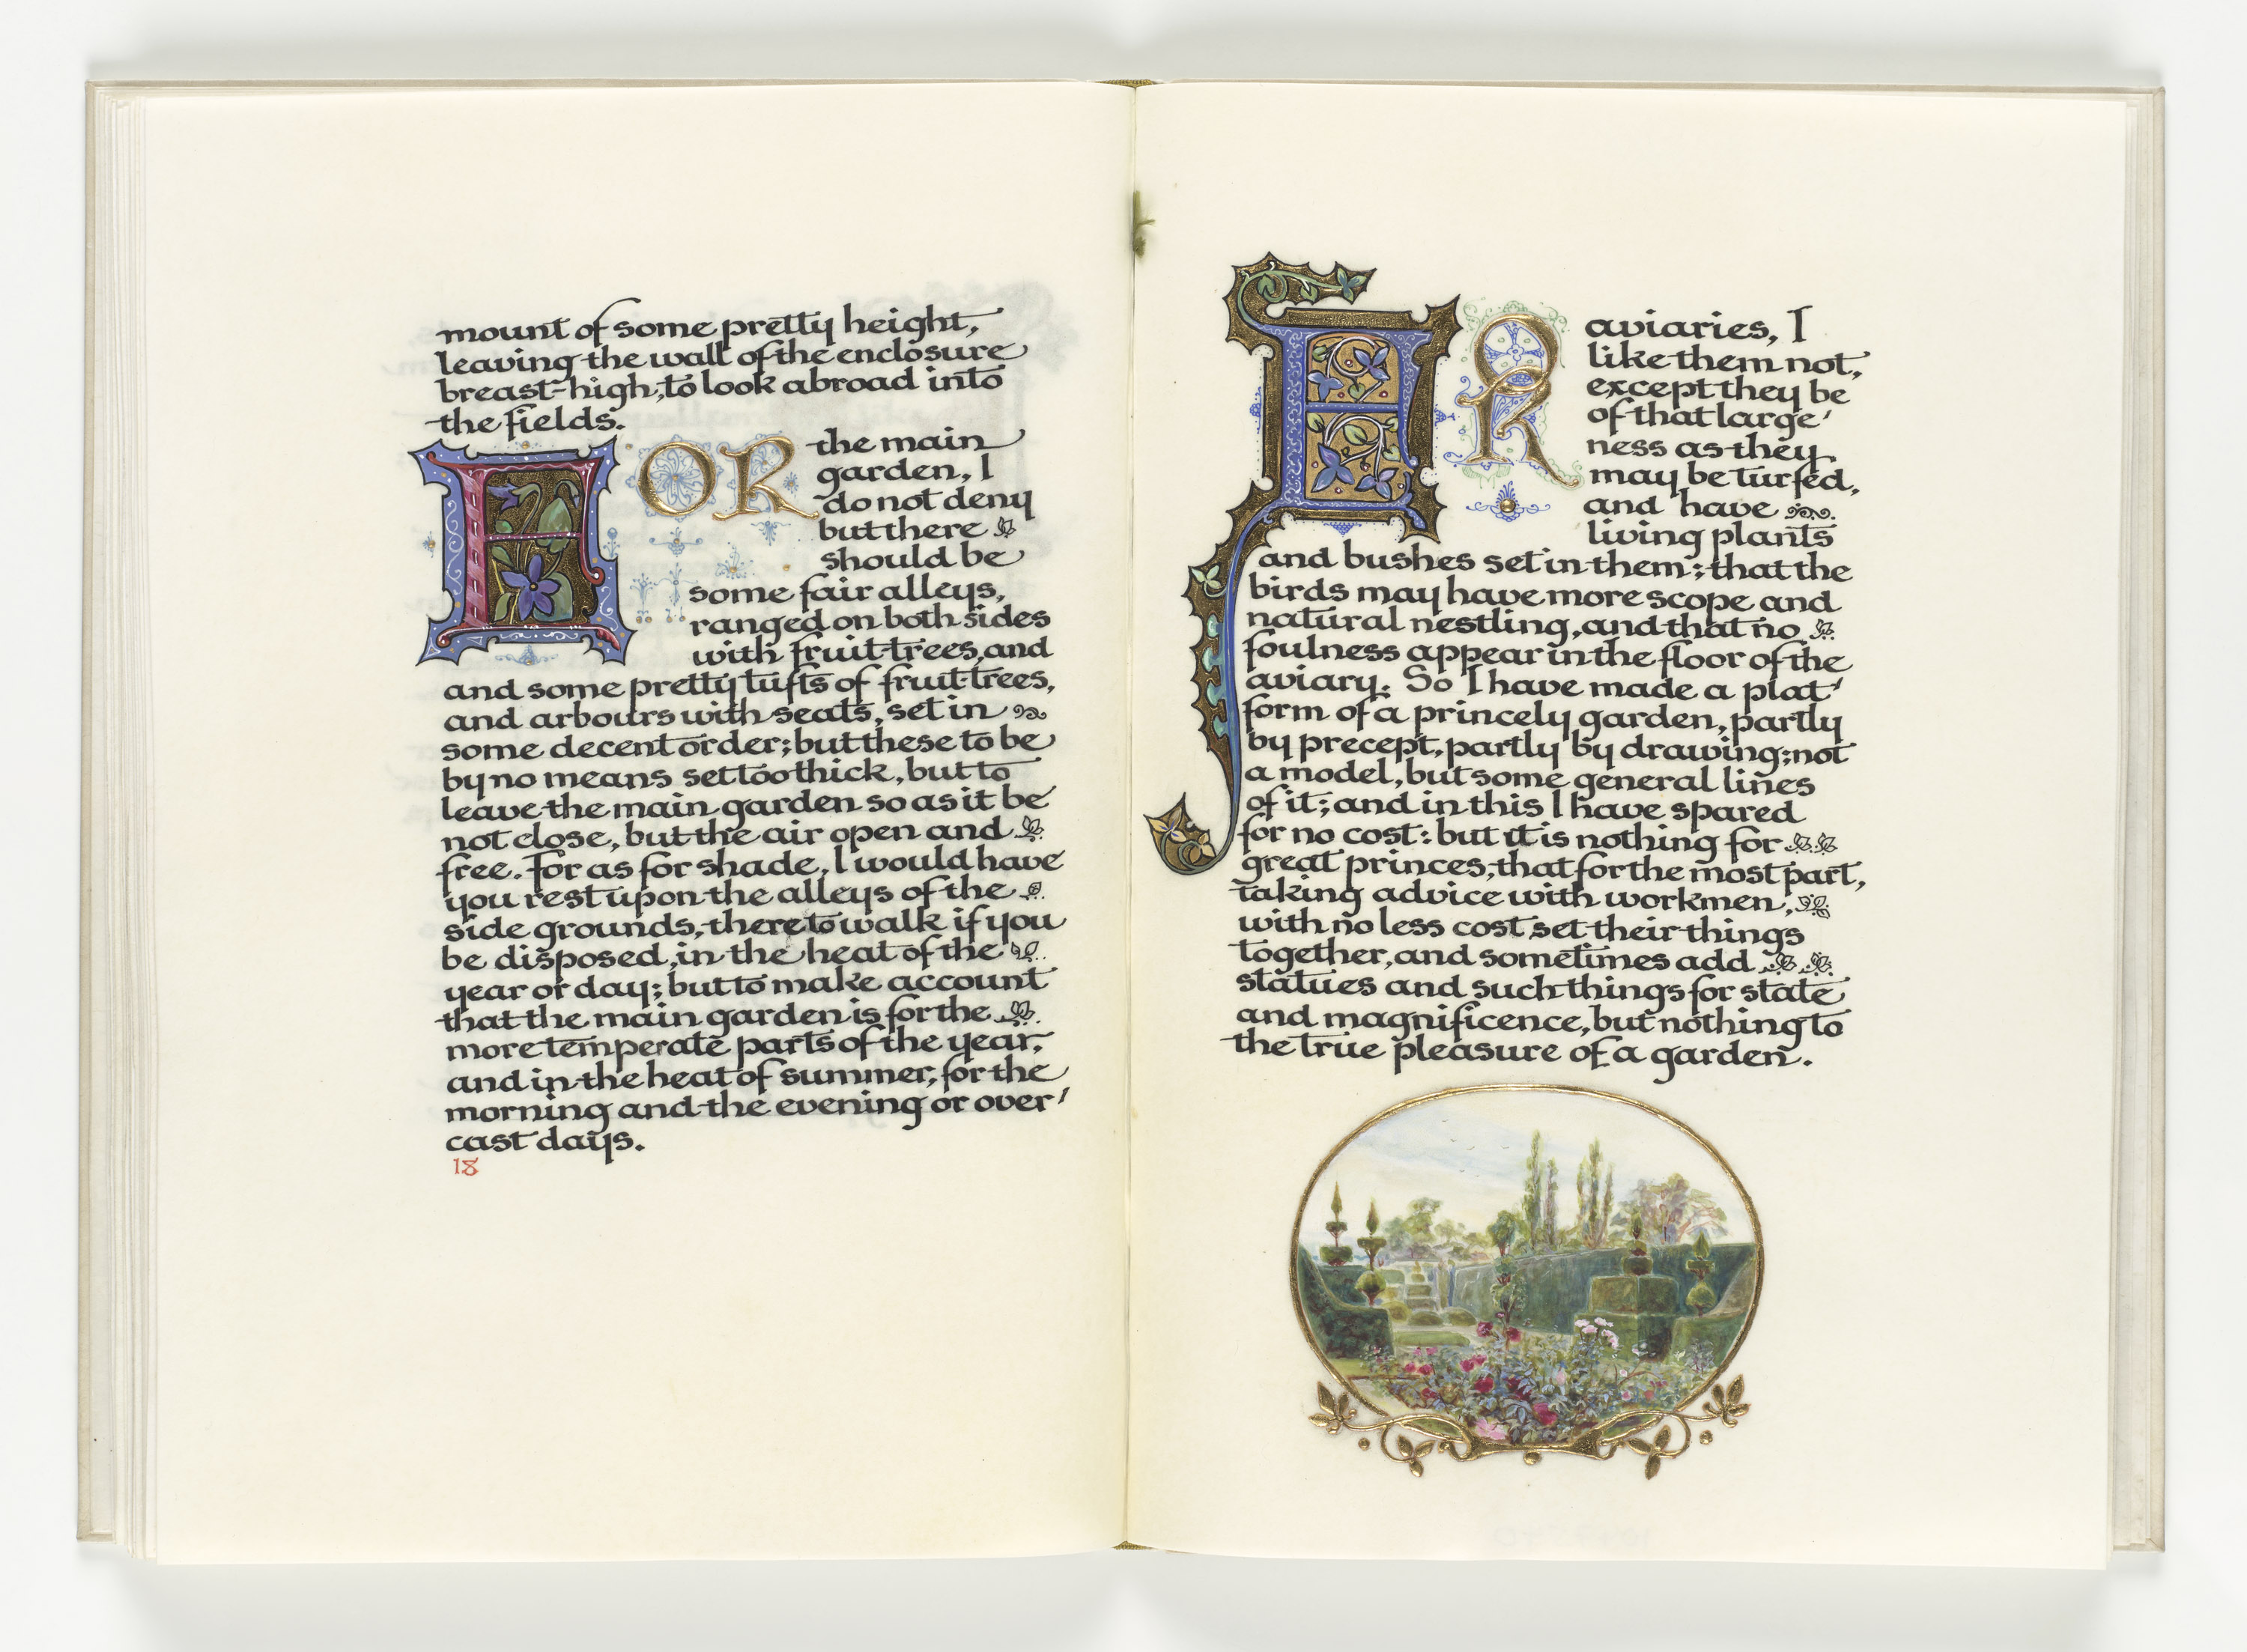 mount of some pretty height,
leaving the wall of the enclosure
breast-high, to look abroad into
the fields.
FOR the main
garden, I
do not deny
but there
should be
some fair alleys,
ranged on both sides
with fruit-trees, and
and some pretty tufts of fruit-trees,
and arbours with seats, set in
some decent order; but these to be
by no means set too thick, but to
leave the main garden so as it be
not close, but the air open and
free. For as for shade, I would have
you rest upon the alleys of the
side grounds, there to walk if you
be disposed, in the heat of the
year or day; but to make account
that the main garden is for the
more temperate parts of the year,
and in the heat of summer, for the
morning and the evening or over-
cast days.
18
FOR aviaries, I
like them not,
except they be
of that large-
ness as they
may be turfed,
and have
living plants
and bushes set in them; that the
birds may have more scope and
natural nestling, and that no
foulness appear in the floor of the
aviary. So I have made a plat-
form of a princely garden, partly
by precept, partly by drawing; not
a model, but some general lines
of it; and in this I have spared
for no cost: but it is nothing for
great princes, that for the most part,
taking advice with workmen,
with no less cost set their things
together, and sometimes add
statues and such things for state
and magnificence, but nothing to
the true pleasure of a garden.